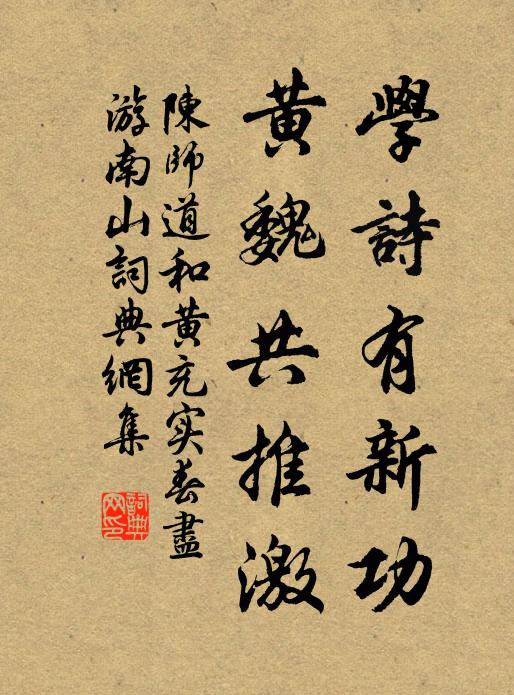 學詩有新功
黃魏共推激
陳師道和黃充实春盡
游南山詞典網集
詞典网印